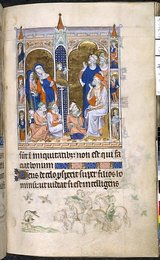 sunt i iniquitatibus non est qui fa
ciat bonum
Deus de celo prspexit super filios ho
minum ut uideat si est intelligens